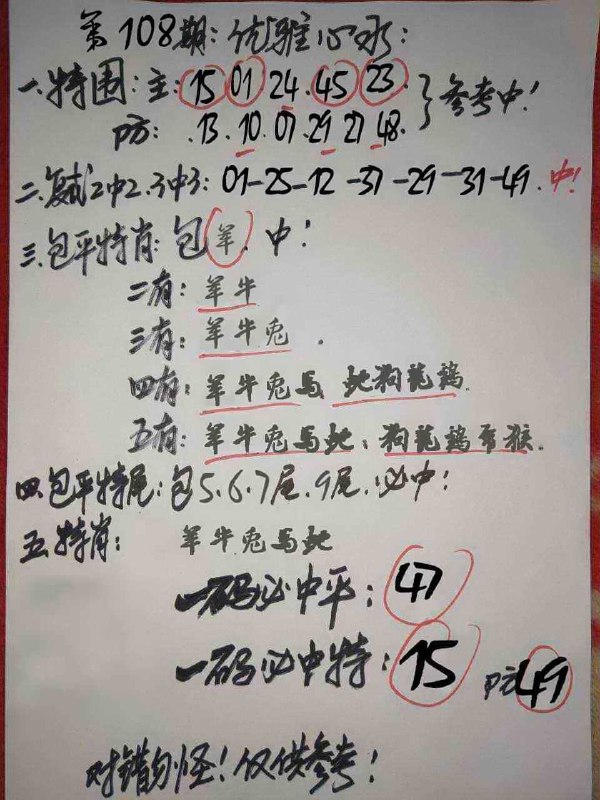 第108期:优雅心水:
一.特围:主:15 01 24.45 23 }参考中!
防:.13.10.07.29 27 48.
二.复式2中2.3中3:01-25-12-37-29-31-49.中!
三.包平特肖:包羊.中!
二有:羊牛
三有:羊牛兔.
四有:羊牛兔马 蛇狗龍鸡.
五有:羊牛兔马蛇、狗龍鸡 猴.
四.包平特尾:包5.6.7尾.9尾.必中!
五.特肖:羊牛兔马蛇
一码必中平:47
一码必中特:15 防49
对错勿怪!仅供参考!